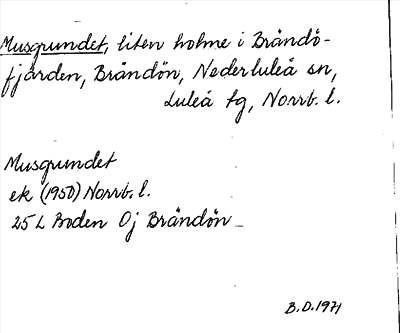 Musgrundet, liten holme i Brändö-
fjärden, Brändön, Nederluleå sn,
Luleå tg, Norrb. l.
Musgrundet
ek (1950) Norrb. l.
25 L Boden 0j Brändön
B.D. 1971